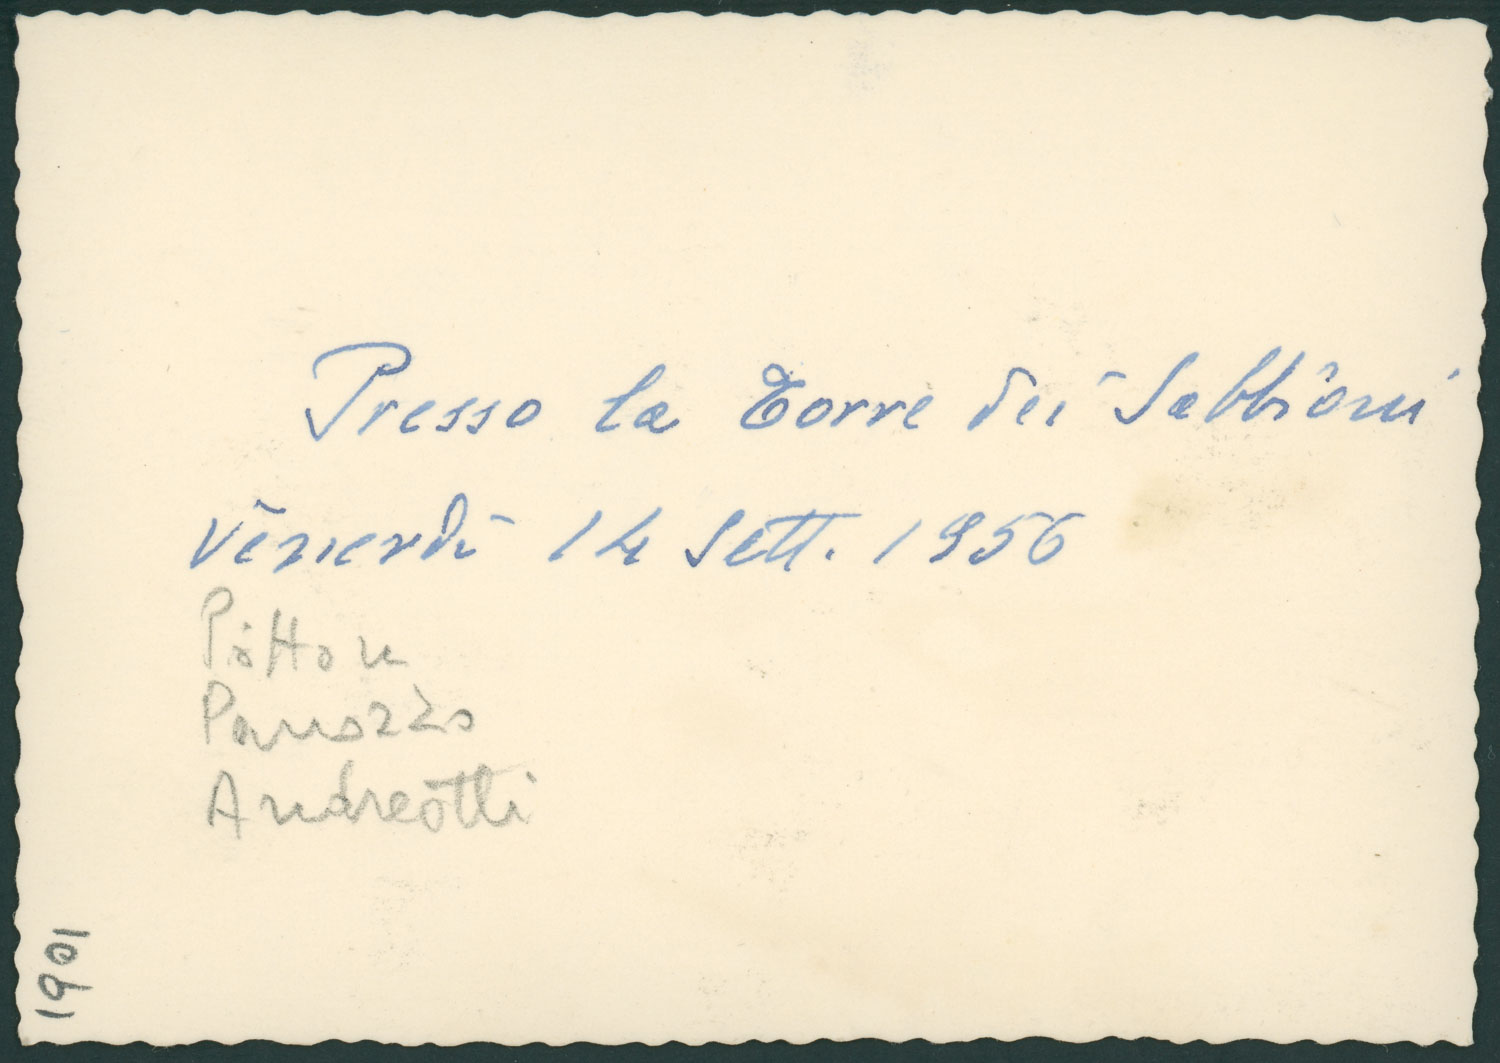 Presso la Torre dei Sabbioni
Venerdì 14 Sett. 1956
Pitton
Panozzo
Andreotti
1901